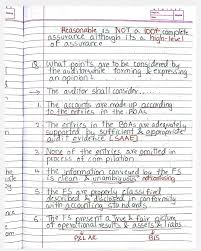 Reasonable is NOT a 100% complete
assurance although its a high-level
of assurance
Q. What points are to be considered by
the auditor while forming & expressing
an opinion?
→ The auditor shall consider
1. The accounts are made up according
to the entries in the BOAs
2. The entries in the BOAs are adequately
supported by sufficient & appropriate
audit evidence [SAAE]
3. None of the entries are omitted in
process of compilation
4. The information conveyed by the FS
is clean & unambiguous
5. The FS are properly classified
described & disclosed in conformity
with accounting standards
6. The FS present a true & fair picture
of operational results & assets & liabs
P&L BS